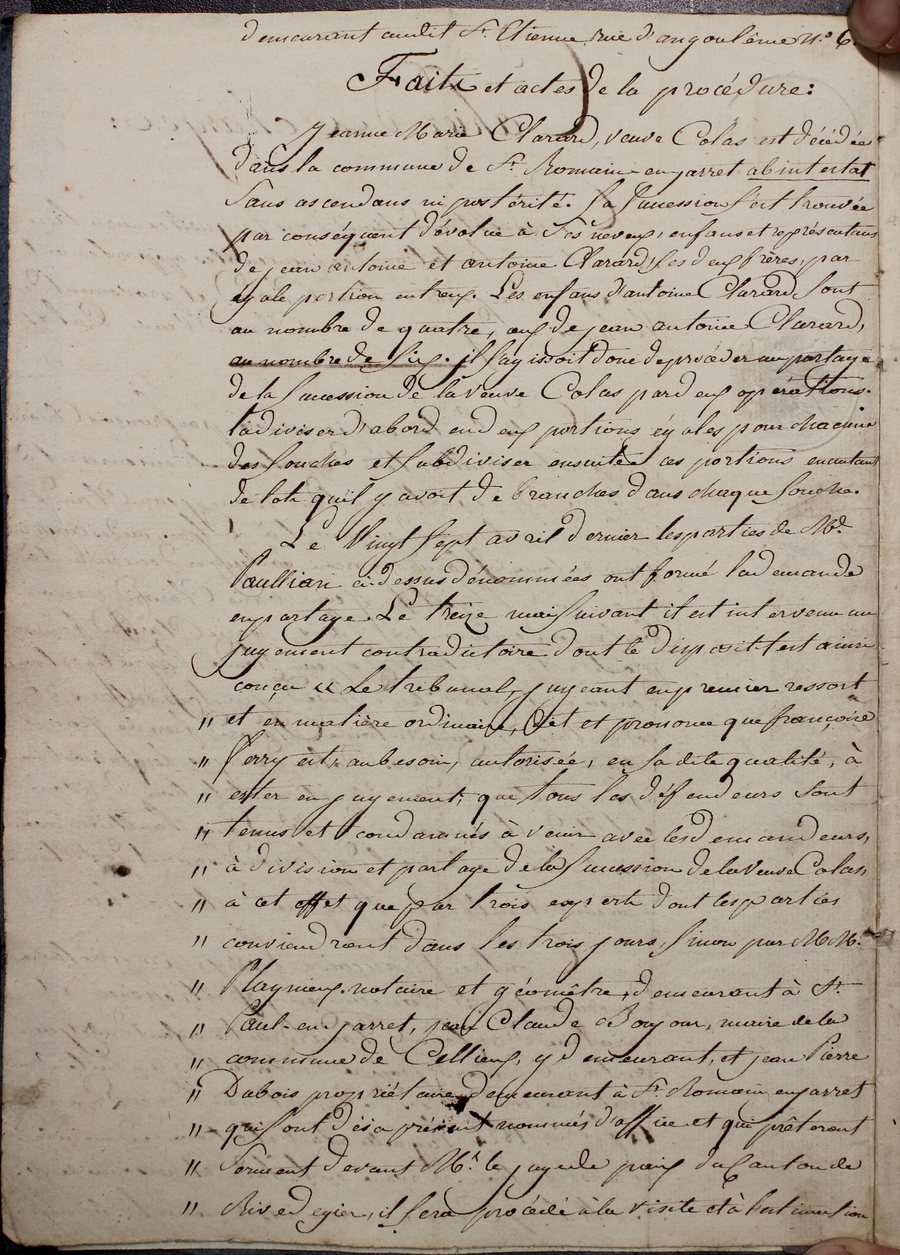 demeurant audit St. Etienne, rue d'angoulême n.o 6.
Faits et actes de la procédure:
Jeanne Marie Clarard, veuve Colas est décédée
dans la commune de St. Romain en jarret abintestat
sans ascendans ni postérité. Sa succession s'est trouvée
par conséquent dévolue à ses neveux, enfans et représentans
de jean antoine et antoine Clarard, ses deux frères, par
égale portion entreux. Les enfans d'antoine Clarard sont
au nombre de quatre, ceux de jean antoine Clarard,
au nombre de six. il s'agissoit donc de procéder au partage
de la succession de la veuve Colas par deux opérations.
la diviser d'abord en deux portions égales pour chacune
des souches et subdiviser ensuite ces portions en autant
de lots qu'il y avoit de branches dans chaque souche.
Le Vingt sept avril dernier les parties de Md.
Paullian ci-dessus dénommées ont formé la demande
en partage. Le treize mai suivant il est intervenu un
jugement contradictoire dont le dispositif est ainsi
conçu « Le tribunal, jugeant en premier ressort
" et en matière ordinaire, dit et prononce que françoise
" Verry est, au besoin, autorisée, en sa dite qualité, à
" ester en jugement, que tous les défendeurs sont
" tenus et condamnés à venir avec les demandeurs,
" à division et partage de la succession de la veuve Colas,
" à cet effet que par trois experts dont les parties
" conviendront dans les trois jours, sinon par MM.
" Playnieux notaire et géomètre, demeurant à St.
" Paul-en-jarret, jean Claude Boujour, maire de la
" commune de Cellieux, y demeurant, et jean Pierre
" Dubois propriétaire demeurant à St. Romain en jarret
" qui sont dès a présent nommés d'office et qui prêteront
" serment devant Mr. le juge de paix du Canton de
" Rivedegier, il sera procédé à la visite et à l'estimation